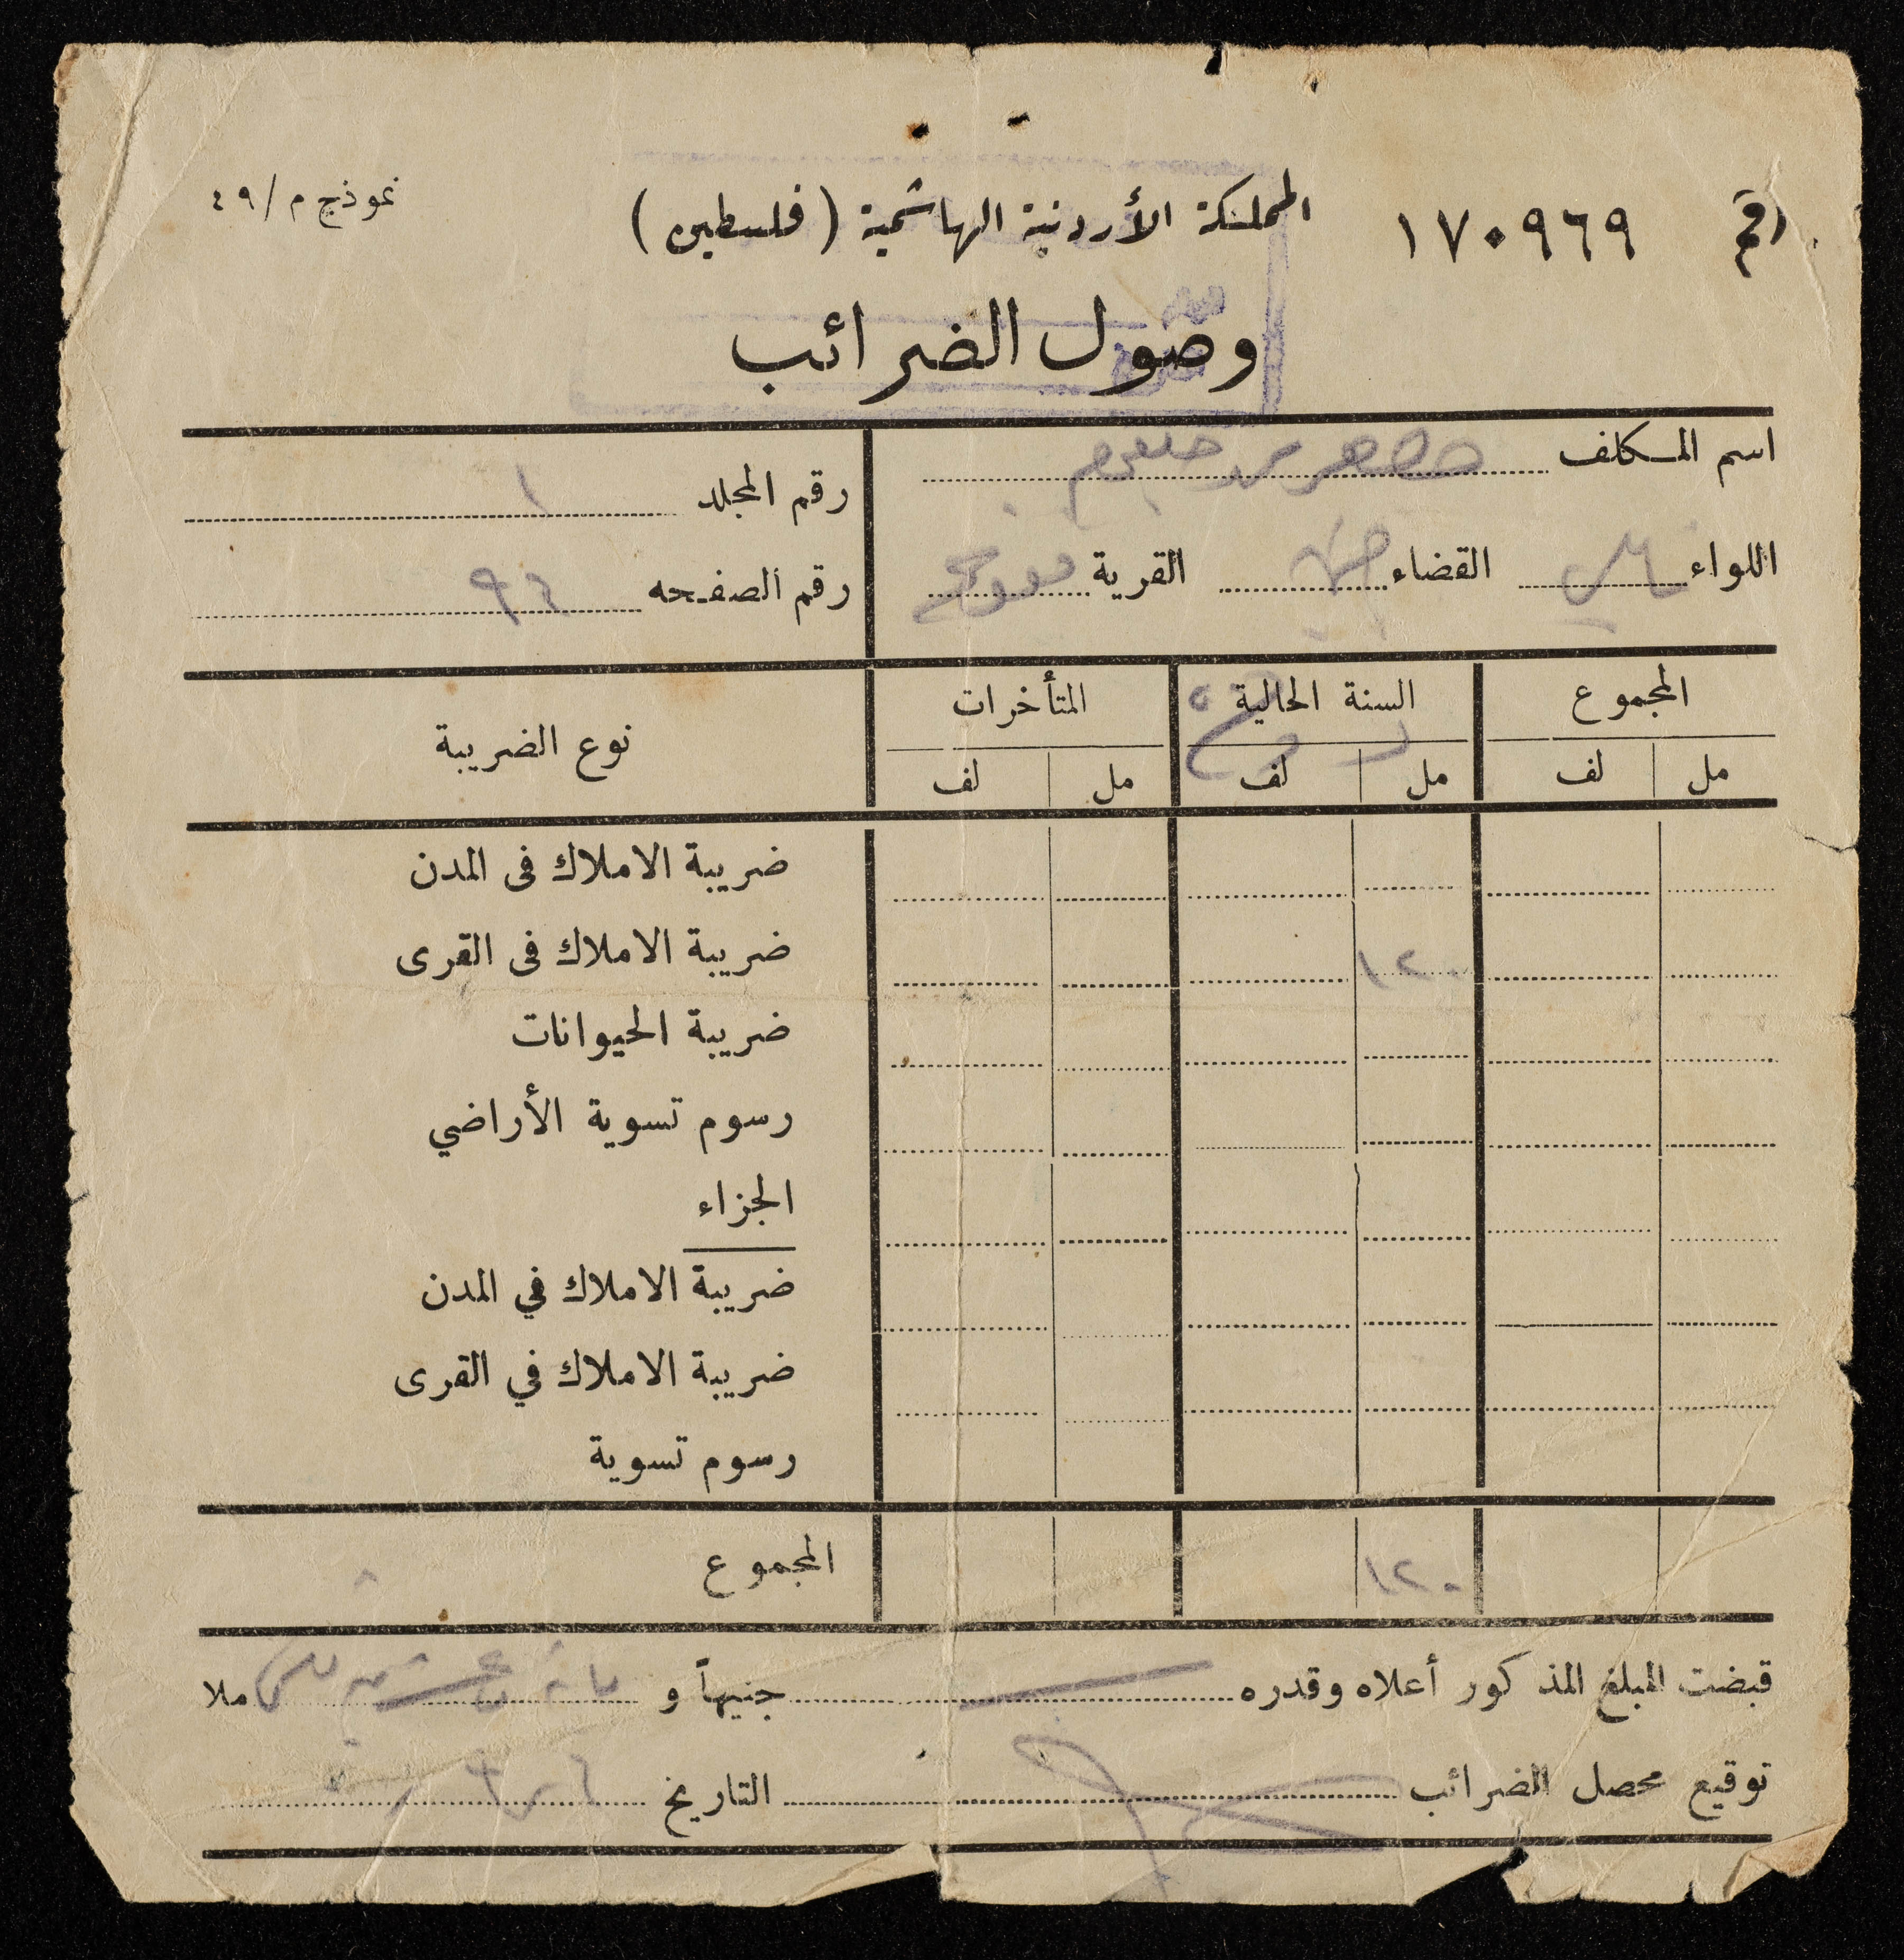 رقم ١٧٠٩٦٩
المملكة الأردنية الهاشمية (فلسطين)
نموذج م/٤٩
وصول الضرائب
اسم المكلف
اللواء نابلس القضاء جنين القرية
رقم المجلد ١
رقم الصفحه ٩٤
المجموع السنة الحالية المتأخرات نوع الضريبة
مل لف مل لف مل لف
ضريبة الاملاك في المدن
١٢٠ ضريبة الاملاك في القرى
ضريبة الحيوانات
رسوم تسوية الأراضي
الجزاء
ضريبة الاملاك في المدن
ضريبة الاملاك في القرى
رسوم تسوية
١٢٠ المجموع
قبضت المبلغ المذكور أعلاه وقدره جنيهاً و مائة وعشرين ملا
توقيع محصل الضرائب التاريخ